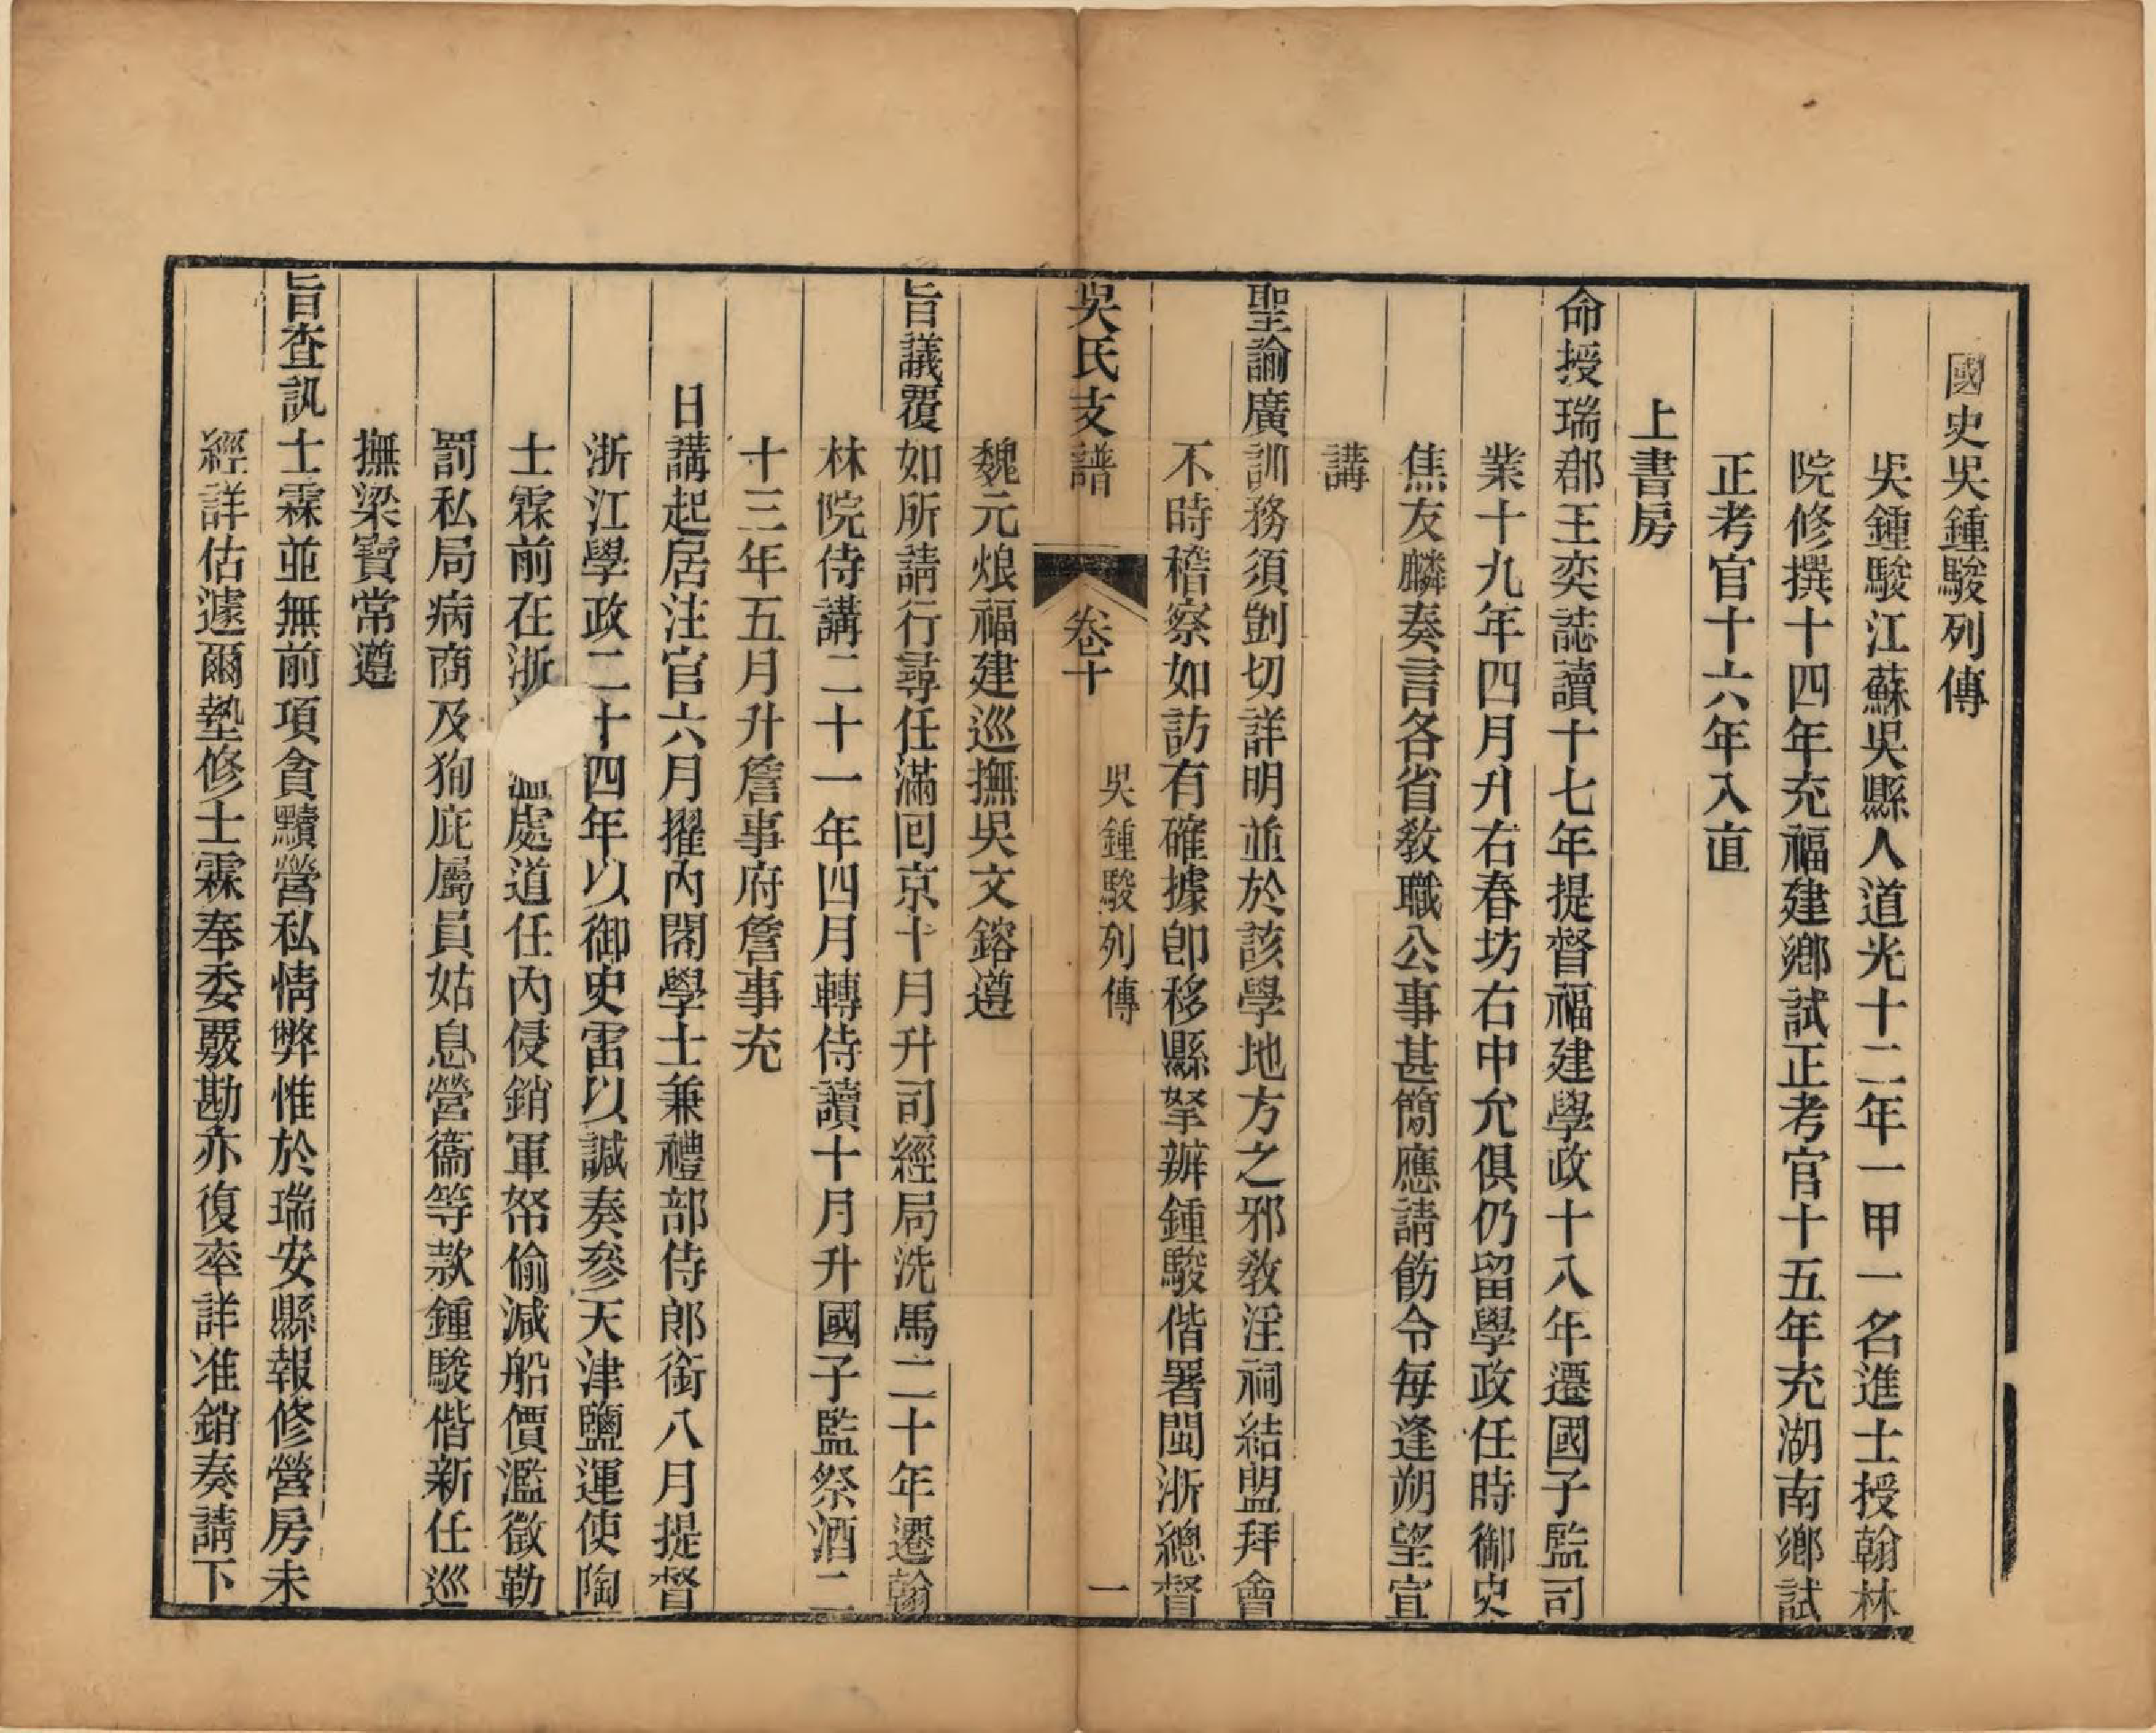 國史吳鍾駿列傳
吳鍾駿江蘇吳縣人道光十二年一甲一名進士授翰林
院修撰十四年充福建鄉試正考官十五年充湖南鄉試
正考官十六年入直
上書房
命授瑞郡王奕誌讀十七年提督福建學政十八年遷國子監司
業十九年四月升右春坊右中允俱仍留學政任時御史
焦友麟奏言各省敎職公事甚簡應請飭令每逢朔望宣
講
聖諭廣訓務須剴切詳明並於該學地方之邪敎淫祠結盟拜會
不時稽察如訪有確據卽移縣拏辦鍾駿偕署閩浙總督
吳氏支譜 卷十 吳鍾駿列傳 一
魏元烺福建巡撫吳文鎔遵
旨議覆如所請行尋任滿回京十月升司經局洗馬二十年遷翰
林院侍講二十一年四月轉侍讀十月升國子監祭酒二
十三年五月升詹事府詹事充
日講起居注官六月擢內閣學士兼禮部侍郎銜八月提督
浙江學政二十四年以御史雷以諴奏參天津鹽運使陶
士霖前在浙溫處道任內侵銷軍帑偷減船價濫徵勒
罰私局病商及狥庇屬員姑息營衞等款鍾駿偕新任巡
撫梁寶常遵
旨查訊士霖並無前項貪黷營私情弊惟於瑞安縣報修營房未
經詳估遽爾墊修士霖奉委覈勘亦復率詳准銷奏請下